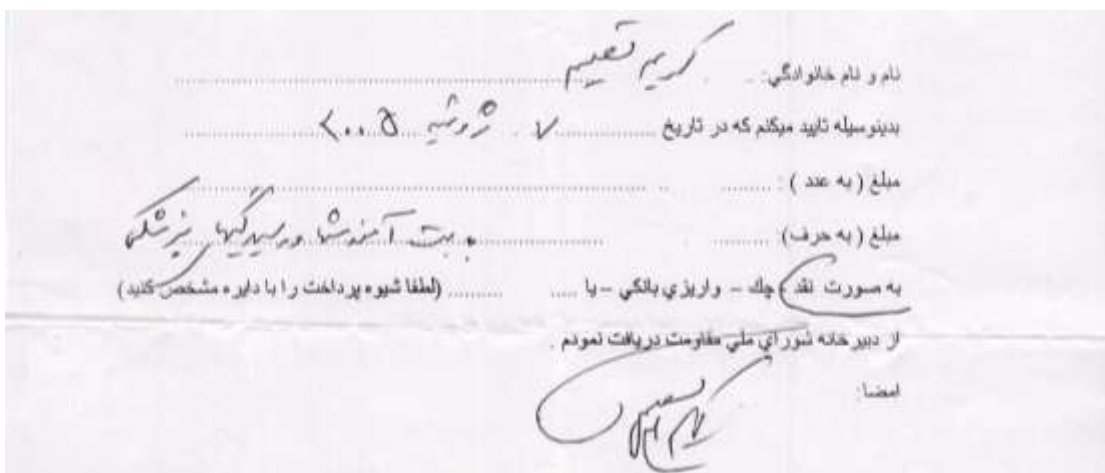 نام و نام خانوادگي: کریم قصیم
بدينوسيله تاييد ميكنم كه در تاريخ ۷ ژوئیه ۲۰۰۵
مبلغ ( به عدد ) :
مبلغ ( به حرف) بابت آموزشها و رسیدگیهای پزشکی
به صورت نقد - چك – واريزي بانكي – يا ..... (لطفا شيوه پرداخت را با دايره مشخص كنيد)
از دبيرخانه شوراي ملي مقاومت دريافت نمودم .
امضا: